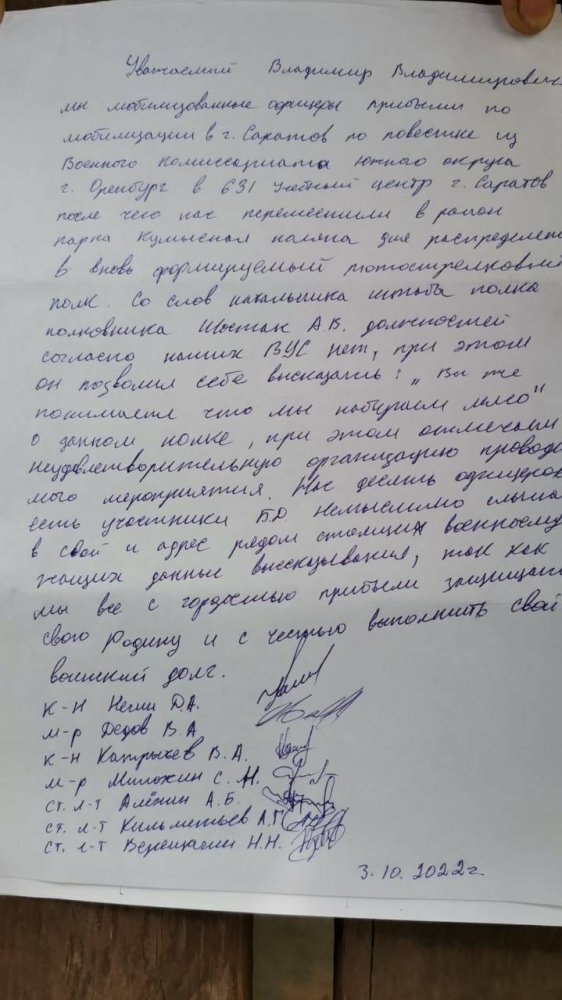 Уважаемый Владимир Владимирович
мы мобилизованные офицеры прибыли по
мобилизации в г. Саратов по повестке из
Военного Комиссариата южнао округа
г. Оренбург в 631 учетный центр г. Саратов
после чего нас переместили в район
парка Кумысная поляна для распределен
в вновь формируемый мотострелковый
полк. Со слов начальника штаба полка
полковника Шостак А.В. должностей
согласно наших ВУС нет, при этом
он позволил себе высказать: „Вы же
понимаете что мы набираем мясо"
о данном полке, при этом отмечаем
неудовлетворительную организацию проводи
мого мероприятия. Нас десять офицеров
есть участники БД Немыслимо слыша
в свой и адрес рядом стоящих военнослу
жащих данные высказывания, так как
мы все с гордостью прибыли защищат
свою Родину и с честью выполнить свой
воинский долг.
к-н Д.А.
м-р Дедов В.А.
к-н Катрычев В.А.
м-р Милохин С. Н.
ст. л-т Алёнин А.Б.
ст. л-т Кильметьев А.Г.
ст. л-т Верещагин Н.Н.
3.10.2022г.